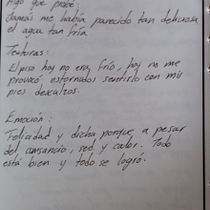 Algo que probé:
Jamás me había parecido tan deliciosa
el agua tan fría
Texturas:
El piso hoy no era frío, hoy no me
provocó estornudos sentirlo con mis
pies descalzos.
Emoción:
Felicidad y dicha porque, a pesar
del cansancio, sed y calor. Todo
está bien y todo se logró.